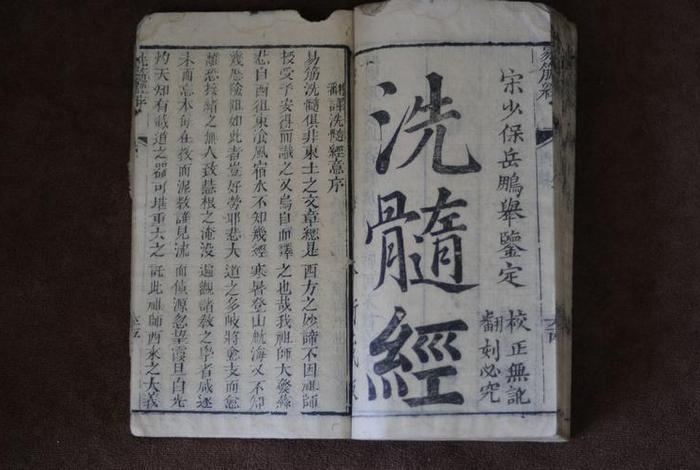 易筋經
宋少保岳鵬舉鑒定
洗髓經
校正無訛
翻刻必究
翻譯洗髓經意序
易筋洗髓俱非東土之文章總是西方之妙諦不因祖師
授受予安得而識之又烏自而譯之也哉我祖師大發慈
悲自西徂東飡風宿水不知幾經寒暑登山航海又不知
幾歷險阻如此者豈好勞耶悲大道之多岐將愈支而愈
離恐接緒之無人致慧根之淹没遍觀諸教之學者咸逐
末而忘本每在教而泥教誰見流而源忽望霞旦白光
灼天知有載道之器可堪重大之託此祖師西來之大義
洗髓經序